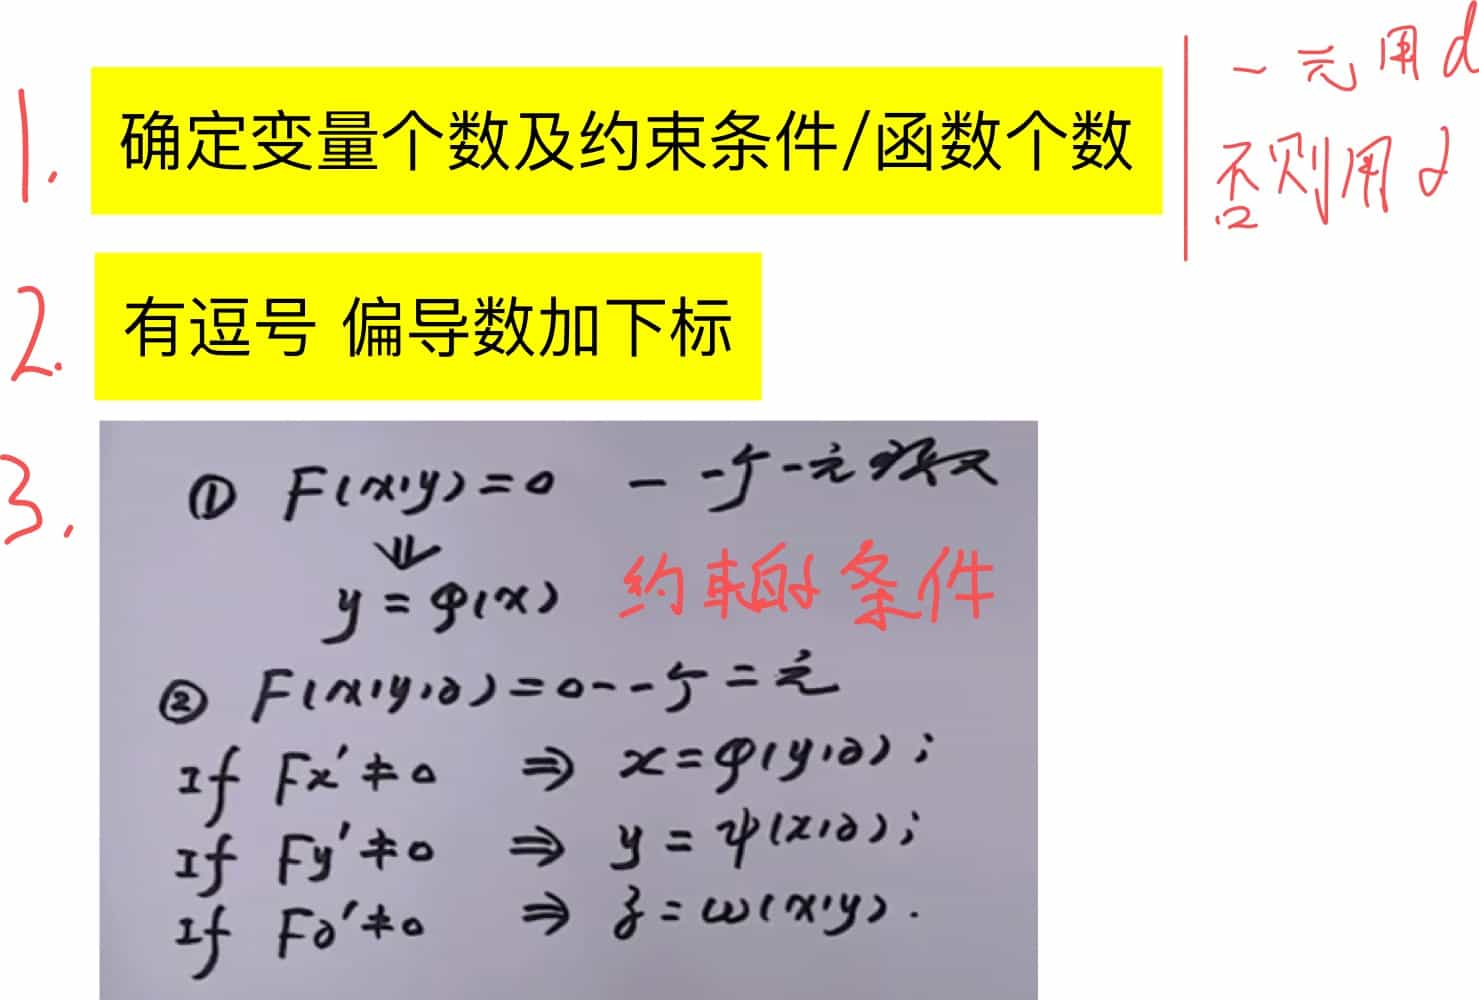 1. 确定变量个数及约束条件/函数个数
一元用d
否则用∂
2. 有逗号 偏导数加下标
3.
① F(x,y)=0 — 一个一元函数
⇓
y=φ(x) 约束的条件
② F(x,y,z)=0--一个二元
If Fx'≠0 ⇒ x=φ(y,z);
If Fy'≠0 ⇒ y=ψ(x,z);
If Fz'≠0 ⇒ z=ω(x,y).